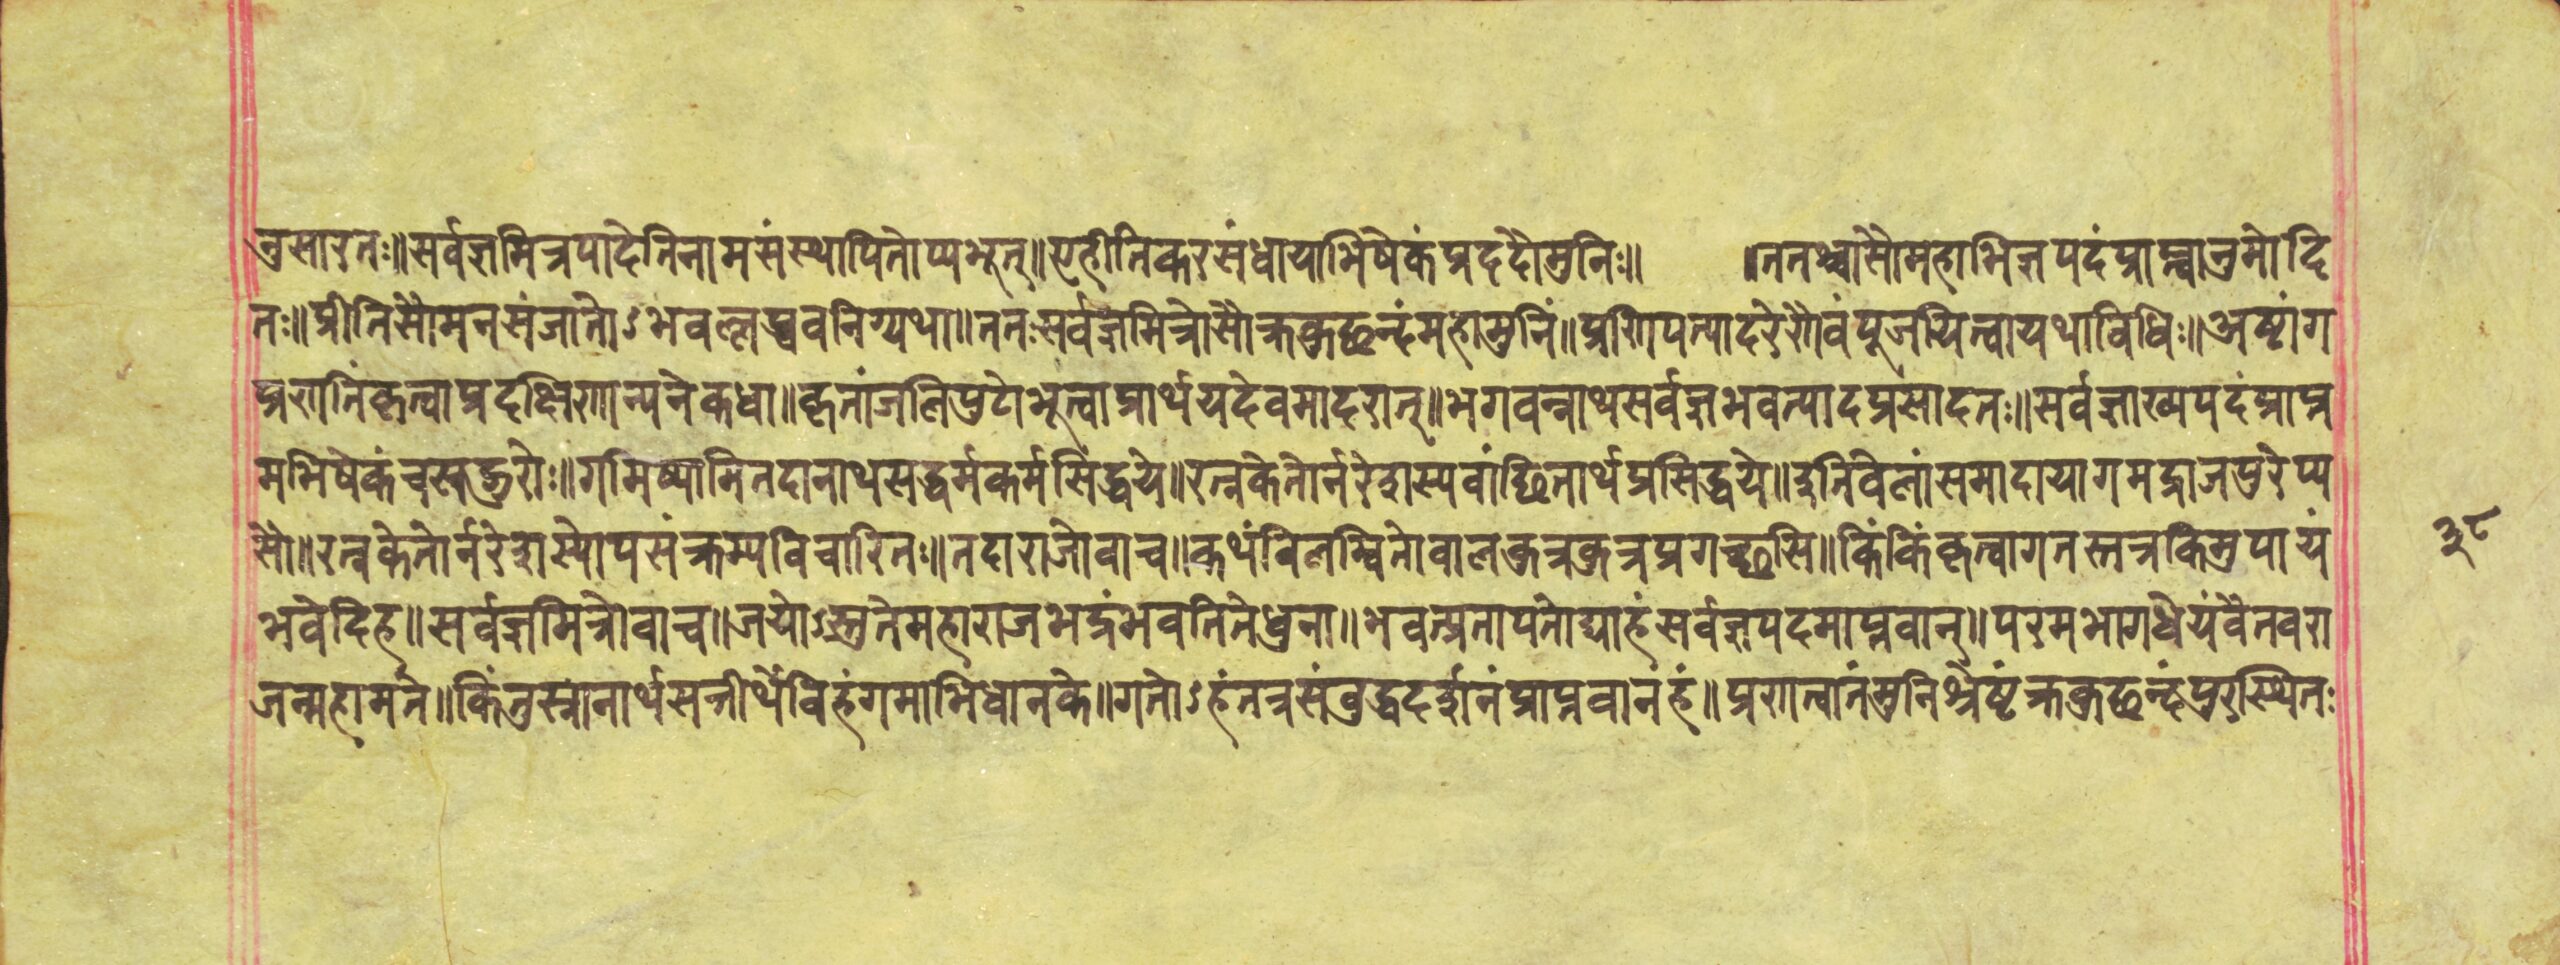 नुसारतः॥सर्वज्ञमित्रपादेतिनामसंस्थापितोप्यभूत्॥एहीतिकरसंधायाभिषेकंप्रददौमुनिः॥ ॥ततश्चासौमहाभिज्ञपदंप्राप्त्वानुमोदि
तः॥प्रीतिसौमनसंजातोऽभवल्लघ्ववनिग्यथा॥ततःसर्वज्ञमित्रोसौक्रकुछन्दंमहामुनिं॥प्रणिपत्यादरेणैवंपूजयित्वायथाविधिः॥अष्टांग
प्रणतिंकृत्वाप्रदक्षिणान्यनेकधा॥कृतांजलिपुटोभूत्वाप्रार्थयदेवमादरात्॥भगवन्नाथसर्वज्ञभवत्पादप्रसादतः॥सर्वज्ञाख्यपदंप्राप्त
मभिषेकंचसद्गुरोः॥गमिष्यामितदानाथसद्धर्मकर्मसिद्धये॥रत्नकेतोर्नरेंद्रास्यवांछितार्थप्रसिद्धये॥इतिवेलांसमादायागमद्राजपुरेप्य
सौ॥रत्नकेतोर्नरेंद्रास्योपसंक्रम्यविचारितः॥तदाराजोवाच॥कथंविलम्वितोवालकुत्रकुत्रप्रगच्छसि॥किंकिंकृत्वागतस्तत्रकिमुपायं
भवेदिह॥सर्वज्ञमित्रोवाच॥जयोऽस्तुतेमहाराजभद्रंभवतितेधुना॥भवत्प्रतापतोद्याहंसर्वज्ञपदमाप्तवान्॥परमभागधेयंवैतवरा
जन्महामते॥किंतुस्नानार्थसत्तीर्थेविहंगमाभिधानके॥गतोऽहंतत्रसंवुद्धदर्शनंप्राप्तवानहं॥प्रणत्वातंमुनिश्रेष्ठंक्रकुछन्दंपुरस्थितः
३८